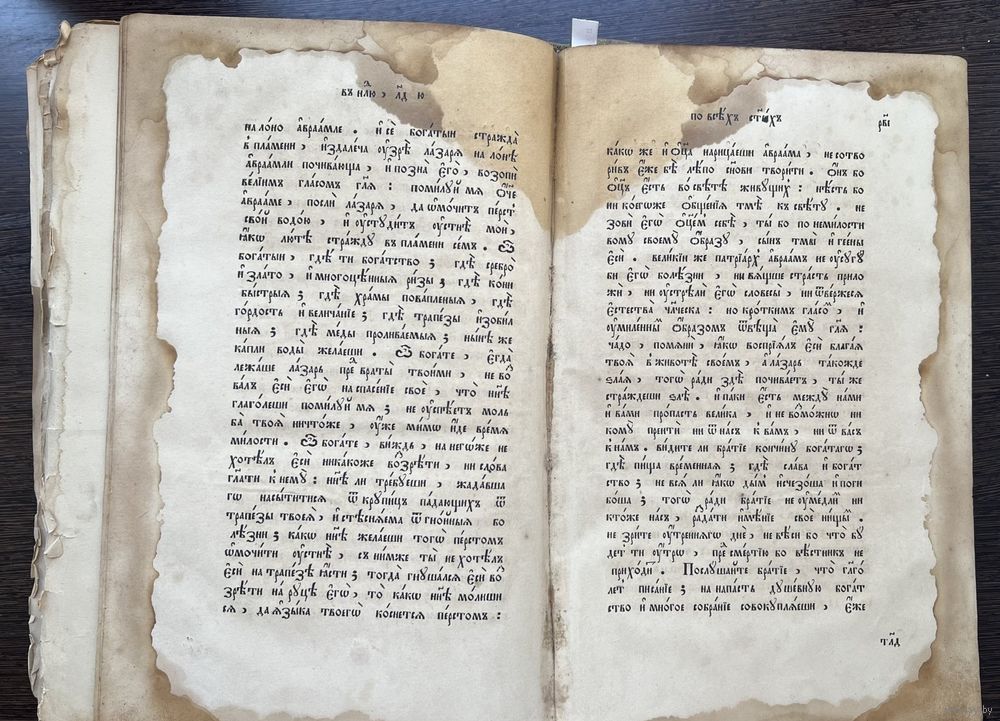 въ нлю , лд ю
на ло́но а҆враа́мле . и҆ сѐ бога́тыи стражда̀
в пла́мени , и҆здале́ча ᲂу҆зрѣ̀ ла́заря на ло́нѣ
а҆враа́мли почива́юща , и҆ позна̀ є҆го̀ , возопи
ве́лїимъ гла́сомъ гл҃я : поми́луй мя ѻ҆́ч҃е
а҆враа́ме , послѝ ла́заря , да ѡ҆мо́читъ пе́рст
сво́й водо́ю , и҆ ᲂу҆студи́тъ ᲂу҆стнѣ̀ мои̑ ,
ꙗ҆́кѡ лю́тѣ стра́жду в пла́мени се́мъ . Ѽ
бога́тыи , гдѣ̀ ти бога́тство ; гдѣ̀ сребро̀
и҆ зла́то , и҆ многоцѣ́нныя ри́зы ; гдѣ̀ ко́ни
бы́стрыя ; гдѣ̀ хра́мы пова́пленыя , гдѣ̀
го́рдость и҆ велича́нїе ; гдѣ̀ трапе́зы и҆зоби́л
ныя ; гдѣ̀ ме́ды пролива́емыя ; ны́нѣ же
ка́пли воды̀ жела́еши . Ѽ бога́те , є҆гда̀
лежа́ше ла́зарь пре враты̀ твои́ми , не во
ва́лъ є҆сѝ є҆го̀ на спасе́нїе своѐ , что̀ нн҃ѣ
глаго́леши поми́луй мя ; не ᲂу҆спѣ́етъ моль
ба̀ твоя̀ ничто́же , ᲂу҆́же ми́мѡ и҆́де вре́мя
ми́лости . Ѽ бога́те , ви́ждь , на него́же не
хотѣ́лъ є҆сѝ никако́же воззрѣ́ти , ни сло́ва
гл҃ати к нему̀ : нн҃ѣ ли тре́буеши , жада́вша
гѡ насы́титися ѿ крупи́цъ па́дающихъ ѿ
трапе́зы твоея̀ , и҆ стѣсня́ема ѿ гно́йныя бо
лѣ́зни ; ка́кѡ нн҃ѣ жела́еши тогѡ̀ пе́рстомъ
ѡ҆мочи́ти ᲂу҆стнѣ̀ , с ни́мже ты̀ не хотѣ́лъ
є҆сѝ на трапе́зѣ ꙗ҆́сти ; тогда̀ гнуша́лся є҆сѝ во
зрѣ́ти на ру́цѣ є҆гѡ̀ , то ка́кѡ нн҃ѣ мо́лиши
ся , да ꙗ҆зы́ка твоегѡ̀ ко́снется пе́рстомъ :
по всѣ́хъ ст҃ы́хъ
рві
ка́кѡ же и҆ ѻ҆ц҃а̀ нарица́еши а҆враа́ма , не сотво
ри́въ є҆́же бѣ̀ лѣ́по сн҃ови твори́ти . Ѻ҆́нъ бо
ѻ҆ц҃ъ є҆́сть во свѣ́тѣ живу́щих : нѣ́сть бо
ни коегѡ́же ѻ҆бще́нїя тмѣ̀ къ свѣ́ту . не
зовѝ є҆гѡ̀ ѻ҆ц҃е́мъ себѣ̀ , ты́ бо по неми́лости
вому своему̀ ѻ҆́бразу , сы́нъ тмы̀ и҆ гее́ны
є҆сѝ . вели́кїи же патрїа́рх а҆враа́мъ не ᲂу҆сугу
бѝ є҆гѡ̀ боле́зни , ни вя́щше стра́сть прило
жѝ , ни ᲂу҆стрелѝ є҆гѡ̀ словесы̀ , ни ѿве́ржеся
є҆стества̀ ч҃лческа : но кро́ткимъ гла́сом , и҆
ᲂу҆миле́нным ѻ҆́бразомъ ѿвѣща̀ є҆му̀ гл҃я :
ча́до , помянѝ , ꙗ҆́кѡ воспрїя́лъ є҆сѝ блага́я
твоя̀ в животѣ̀ свое́мъ , а҆ ла́зарь та́кожде
ѕла́я , тогѡ̀ ра́ди здѣ̀ почива́етъ , ты́ же
стра́ждеши ѕлѣ̀ . и҆ па́ки є҆́сть между̀ на́ми
и҆ ва́ми про́пасть вели́ка , и҆ не возмо́жно ни
кому̀ преитѝ ни ѿ на́съ к ва́мъ , ни ѿ ва́съ
к на́м . ви́дите ли бра́тїе кончи́ну бога́таго ;
гдѣ̀ пи́ща вре́менная ; гдѣ̀ сла́ва и҆ бога́т
ство ; не вся́ ли ꙗ҆́кѡ ды́м и҆счезо́ша и҆ поги
бо́ша ; тогѡ̀ ра́ди бра́тїе не ᲂу҆ме́дли ни
кто́же на́съ , разда́ти и҆мѣ́нїе своѐ ни́щым .
не зри́те ᲂу҆́треннягѡ днѐ , не вѣ́си бо что̀ бу
дет ти ᲂу҆́трѡ , пре сме́ртїю бо вѣ́стникъ не
прихо́дит . Послу́шайте бра́тїе , что̀ гл҃го
летъ писа́нїе ; на напа́сть душе́вную бога́т
ство и҆ мно́гое собра́нїе совокупля́еши , є҆́же
тлд